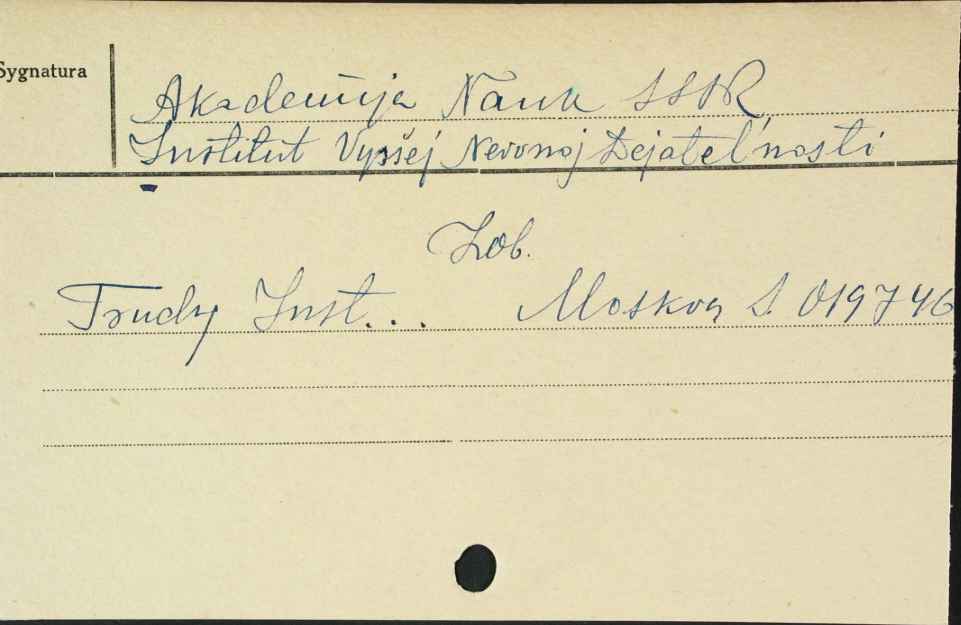 Sygnatura
Akademija Nauk SSSR
Institut Vysšej Nervnoj Dejatel'nosti
Zob.
Trudy Inst... Moskva S. 019746